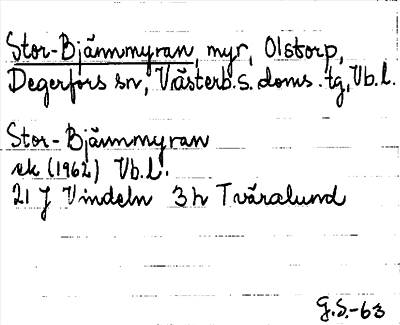 Stor-Bjännmyran, myr, Olstorp,
Degerfors sn, Västerb.s. doms. tg, Vb.l.
Stor-Bjännmyran
ek (1962) Vb.l.
21 J Vindeln 3h Tväralund
G.S.-63